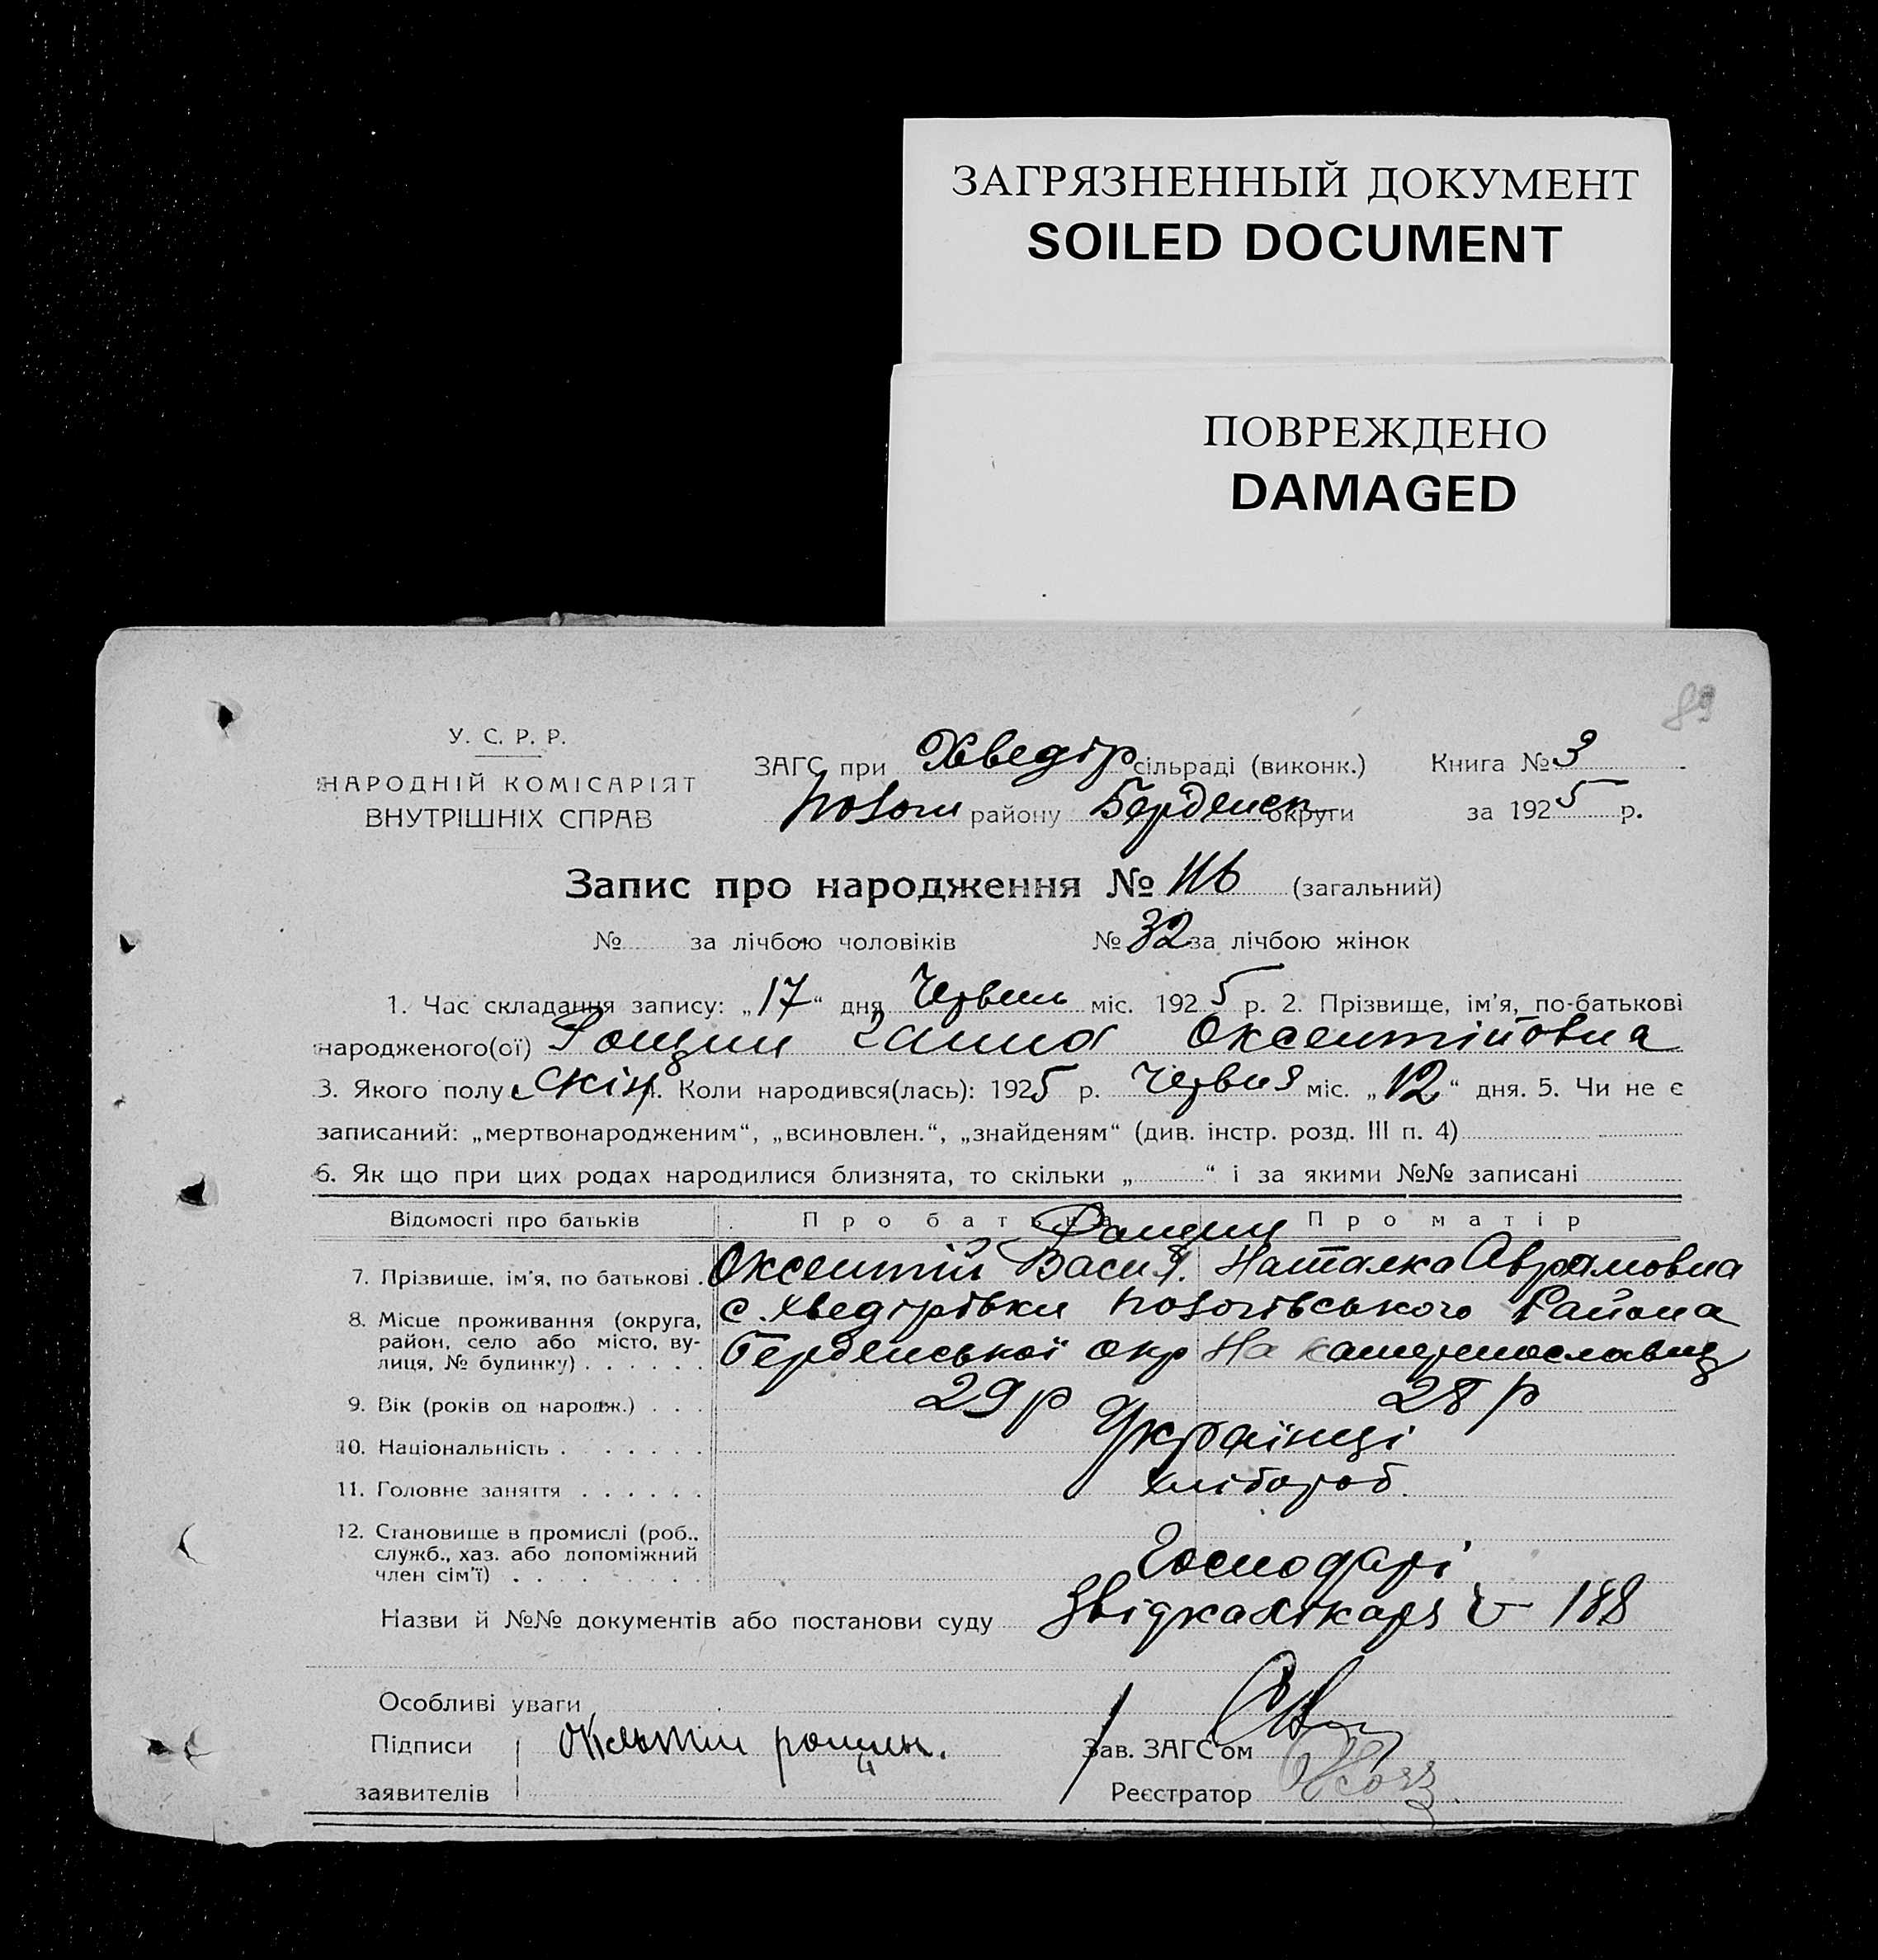 ЗАГРЯЗНЕННЫЙ ДОКУМЕНТ
SOILED DOCUMENT
ПОВРЕЖДЕНО
DAMAGED
89
У. С. Р. Р.
НАРОДНІЙ КОМІСАРІЯТ
ВНУТРІШНІХ СПРАВ
ЗАГС при Хведір сільраді (виконк.) Книга № 3
району Бердянск округи за 1925 р.
Запис про народження № 116 (загальний)
№ за лічбою чоловіків № 32 за лічбою жінок
1. Час складання запису: „17“ дня Червень міс. 1925 р. 2. Прізвище, ім'я, по-батькові
народженого(ої) Рощин Ганна Оксентійовна
3. Якого полу жін 4. Коли народився(лась): 1925 р. Червня міс. „12“ дня. 5. Чи не є
записаний: „мертвонародженим“, „всиновлен.“, „знайденям“ (див. інстр. розд. III п. 4)
6. Як що при цих родах народилися близнята, то скільки „ “ і за якими №№ записані
Відомості про батьків Про батька Про матір
Рощин
7. Прізвище, ім'я, по батькові . Оксентій Васил. Наталка Аврамовна
8. Місце проживання (округа, район, село або місто, вулиця, № будинку) . . . . . . с. Хведірівки Ногогівського Района
Бердянської окр На Катеринославщ
9. Вік (років од народж.) . . . 29 р 28 р
10. Національність . . . . . . . Українці
11. Головне заняття . . . . . . хлібороб.
12. Становище в промислі (роб., служб., хаз. або допоміжний член сім'ї) . . . . . . . . Господарі
Назви й №№ документів або постанови суду Звідка лікаря 188
Особливі уваги
Підписи Оксентий рощин.
Зав. ЗАГС'ом
заявителів
Реєстратор